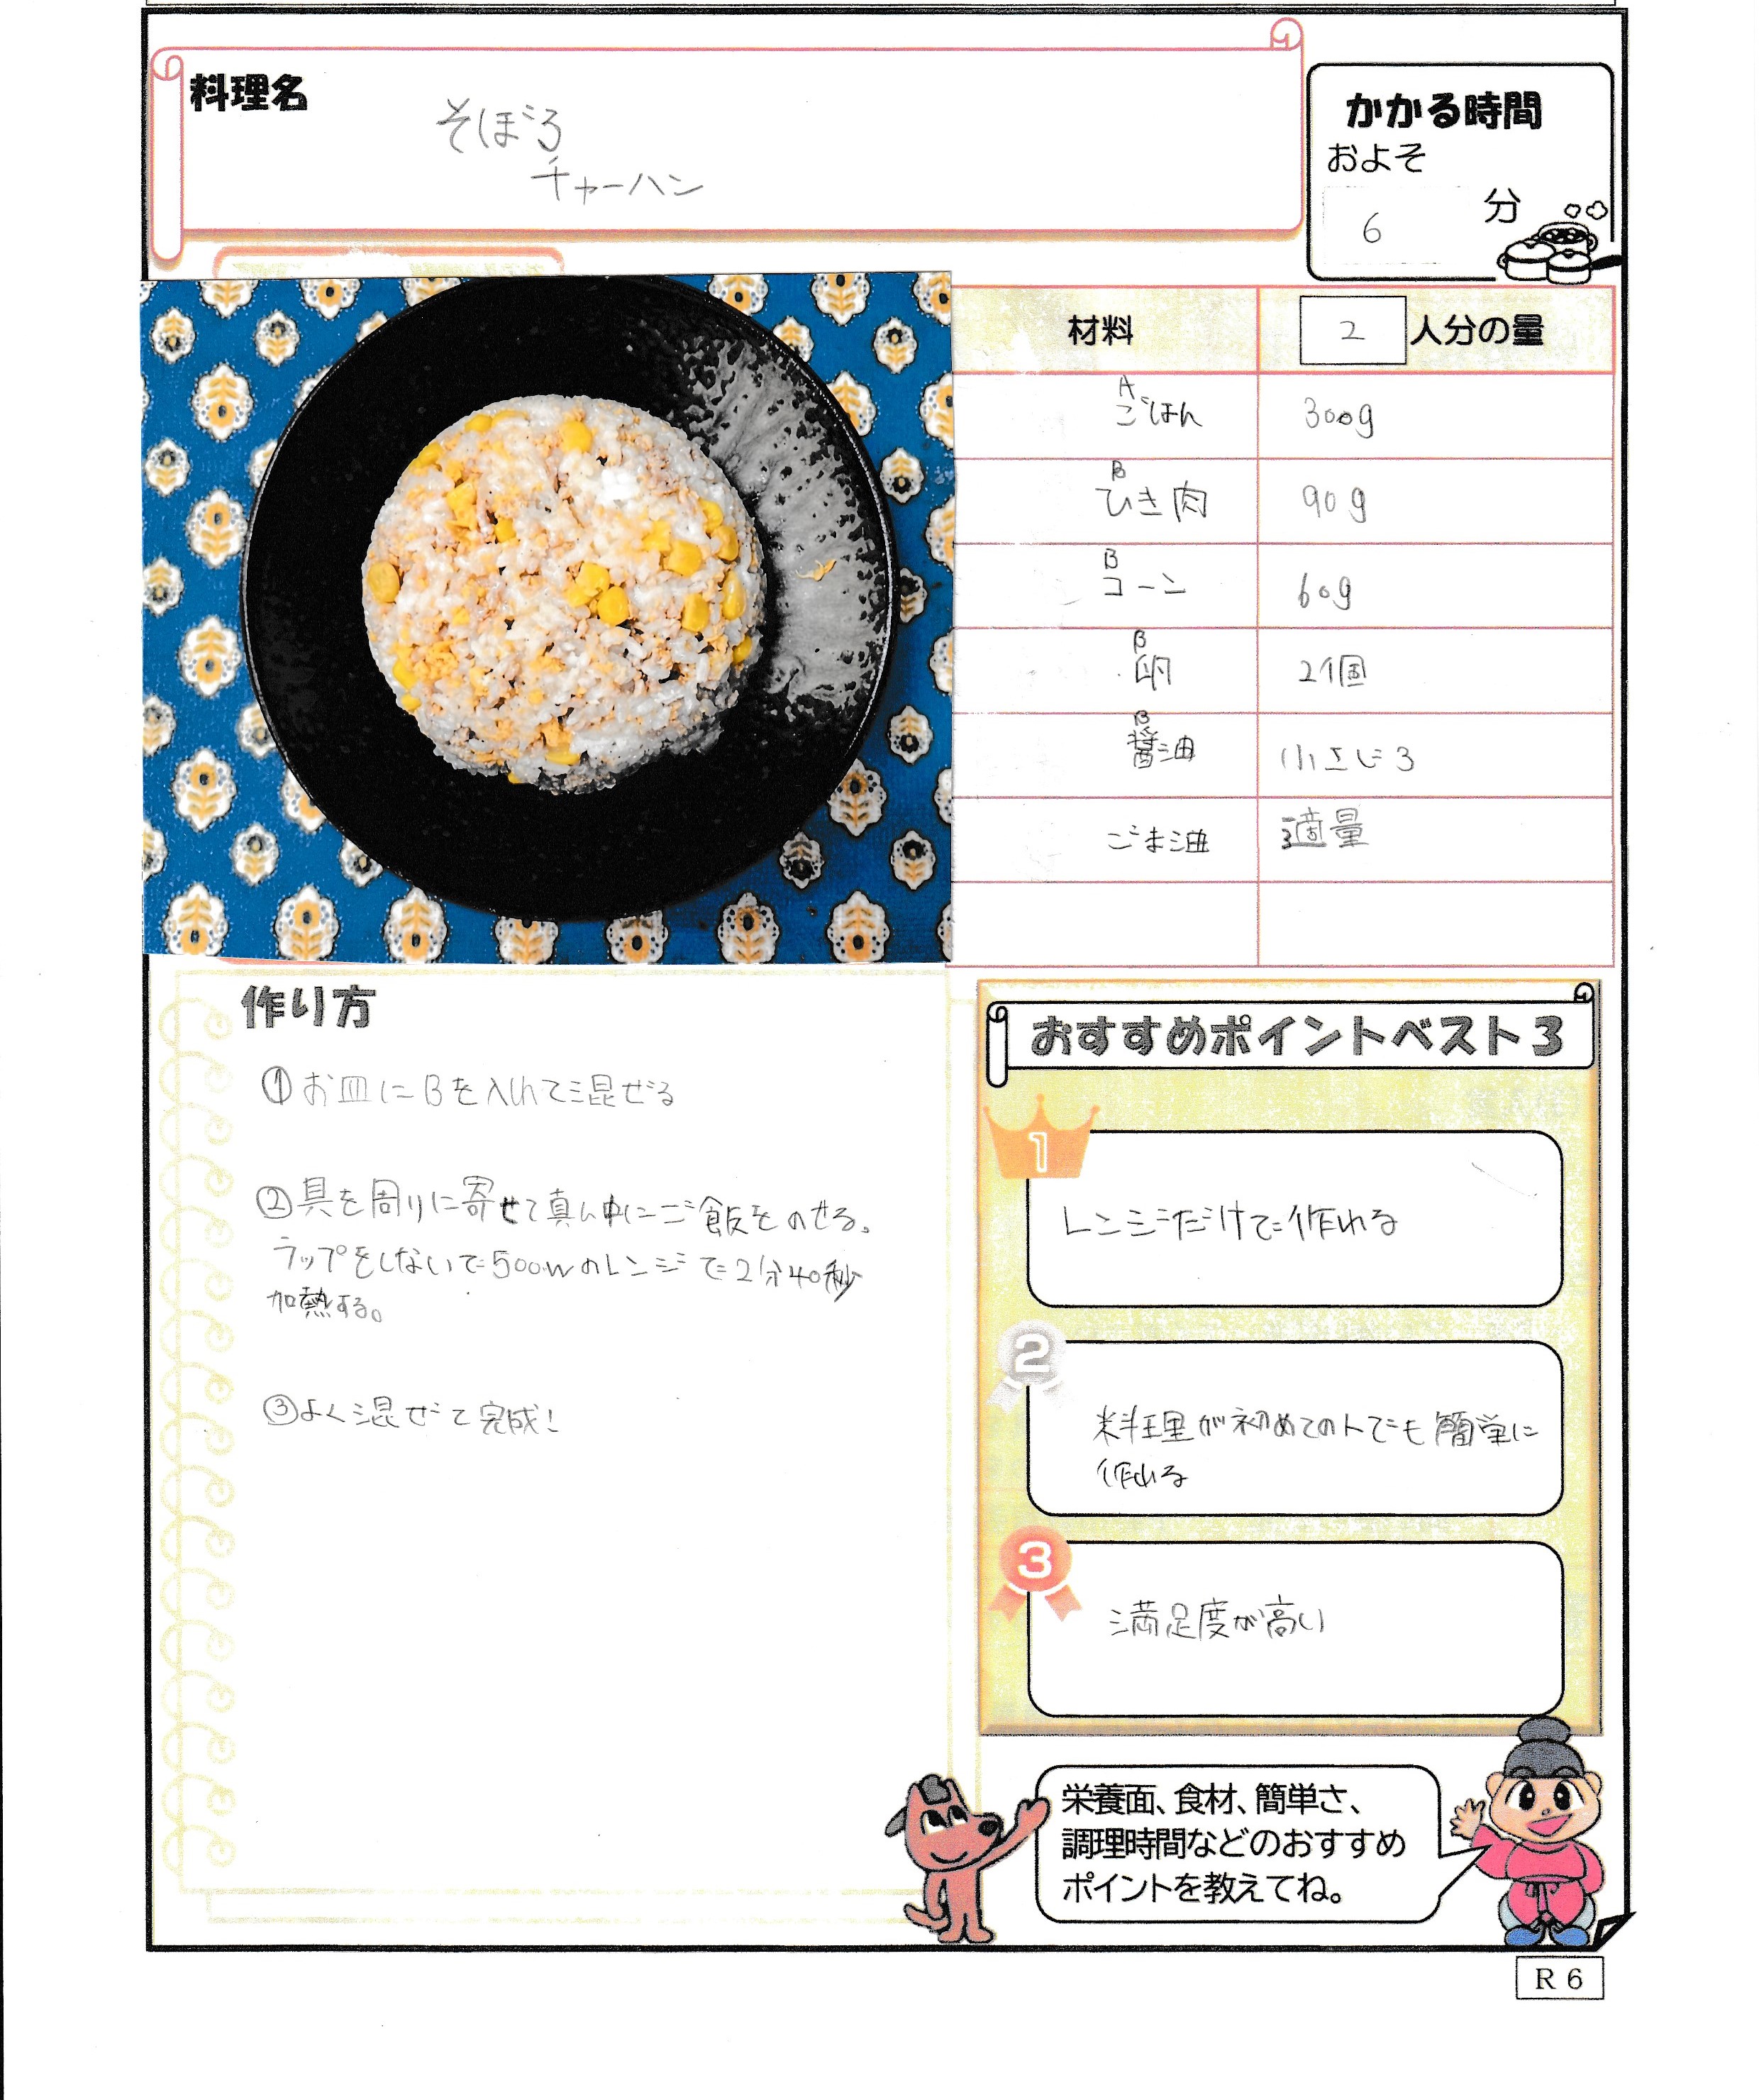 料理名
そぼろ
チャーハン
かかる時間
およそ
6 分
材料 2 人分の量
A
ごはん 300g
B
ひき肉 90g
B
コーン 60g
B
卵 2個
B
醤油 小さじ3
ごま油 適量
作り方
①お皿にBを入れて混ぜる
②具を周りに寄せて真ん中にご飯をのせる。
ラップをしないで500wのレンジで2分40秒
加熱する。
③よく混ぜて完成!
おすすめポイントベスト3
1
レンジだけで作れる
2
料理が初めての人でも簡単に
作れる
3
満足度が高い
栄養面、食材、簡単さ、
調理時間などのおすすめ
ポイントを教えてね。
R6